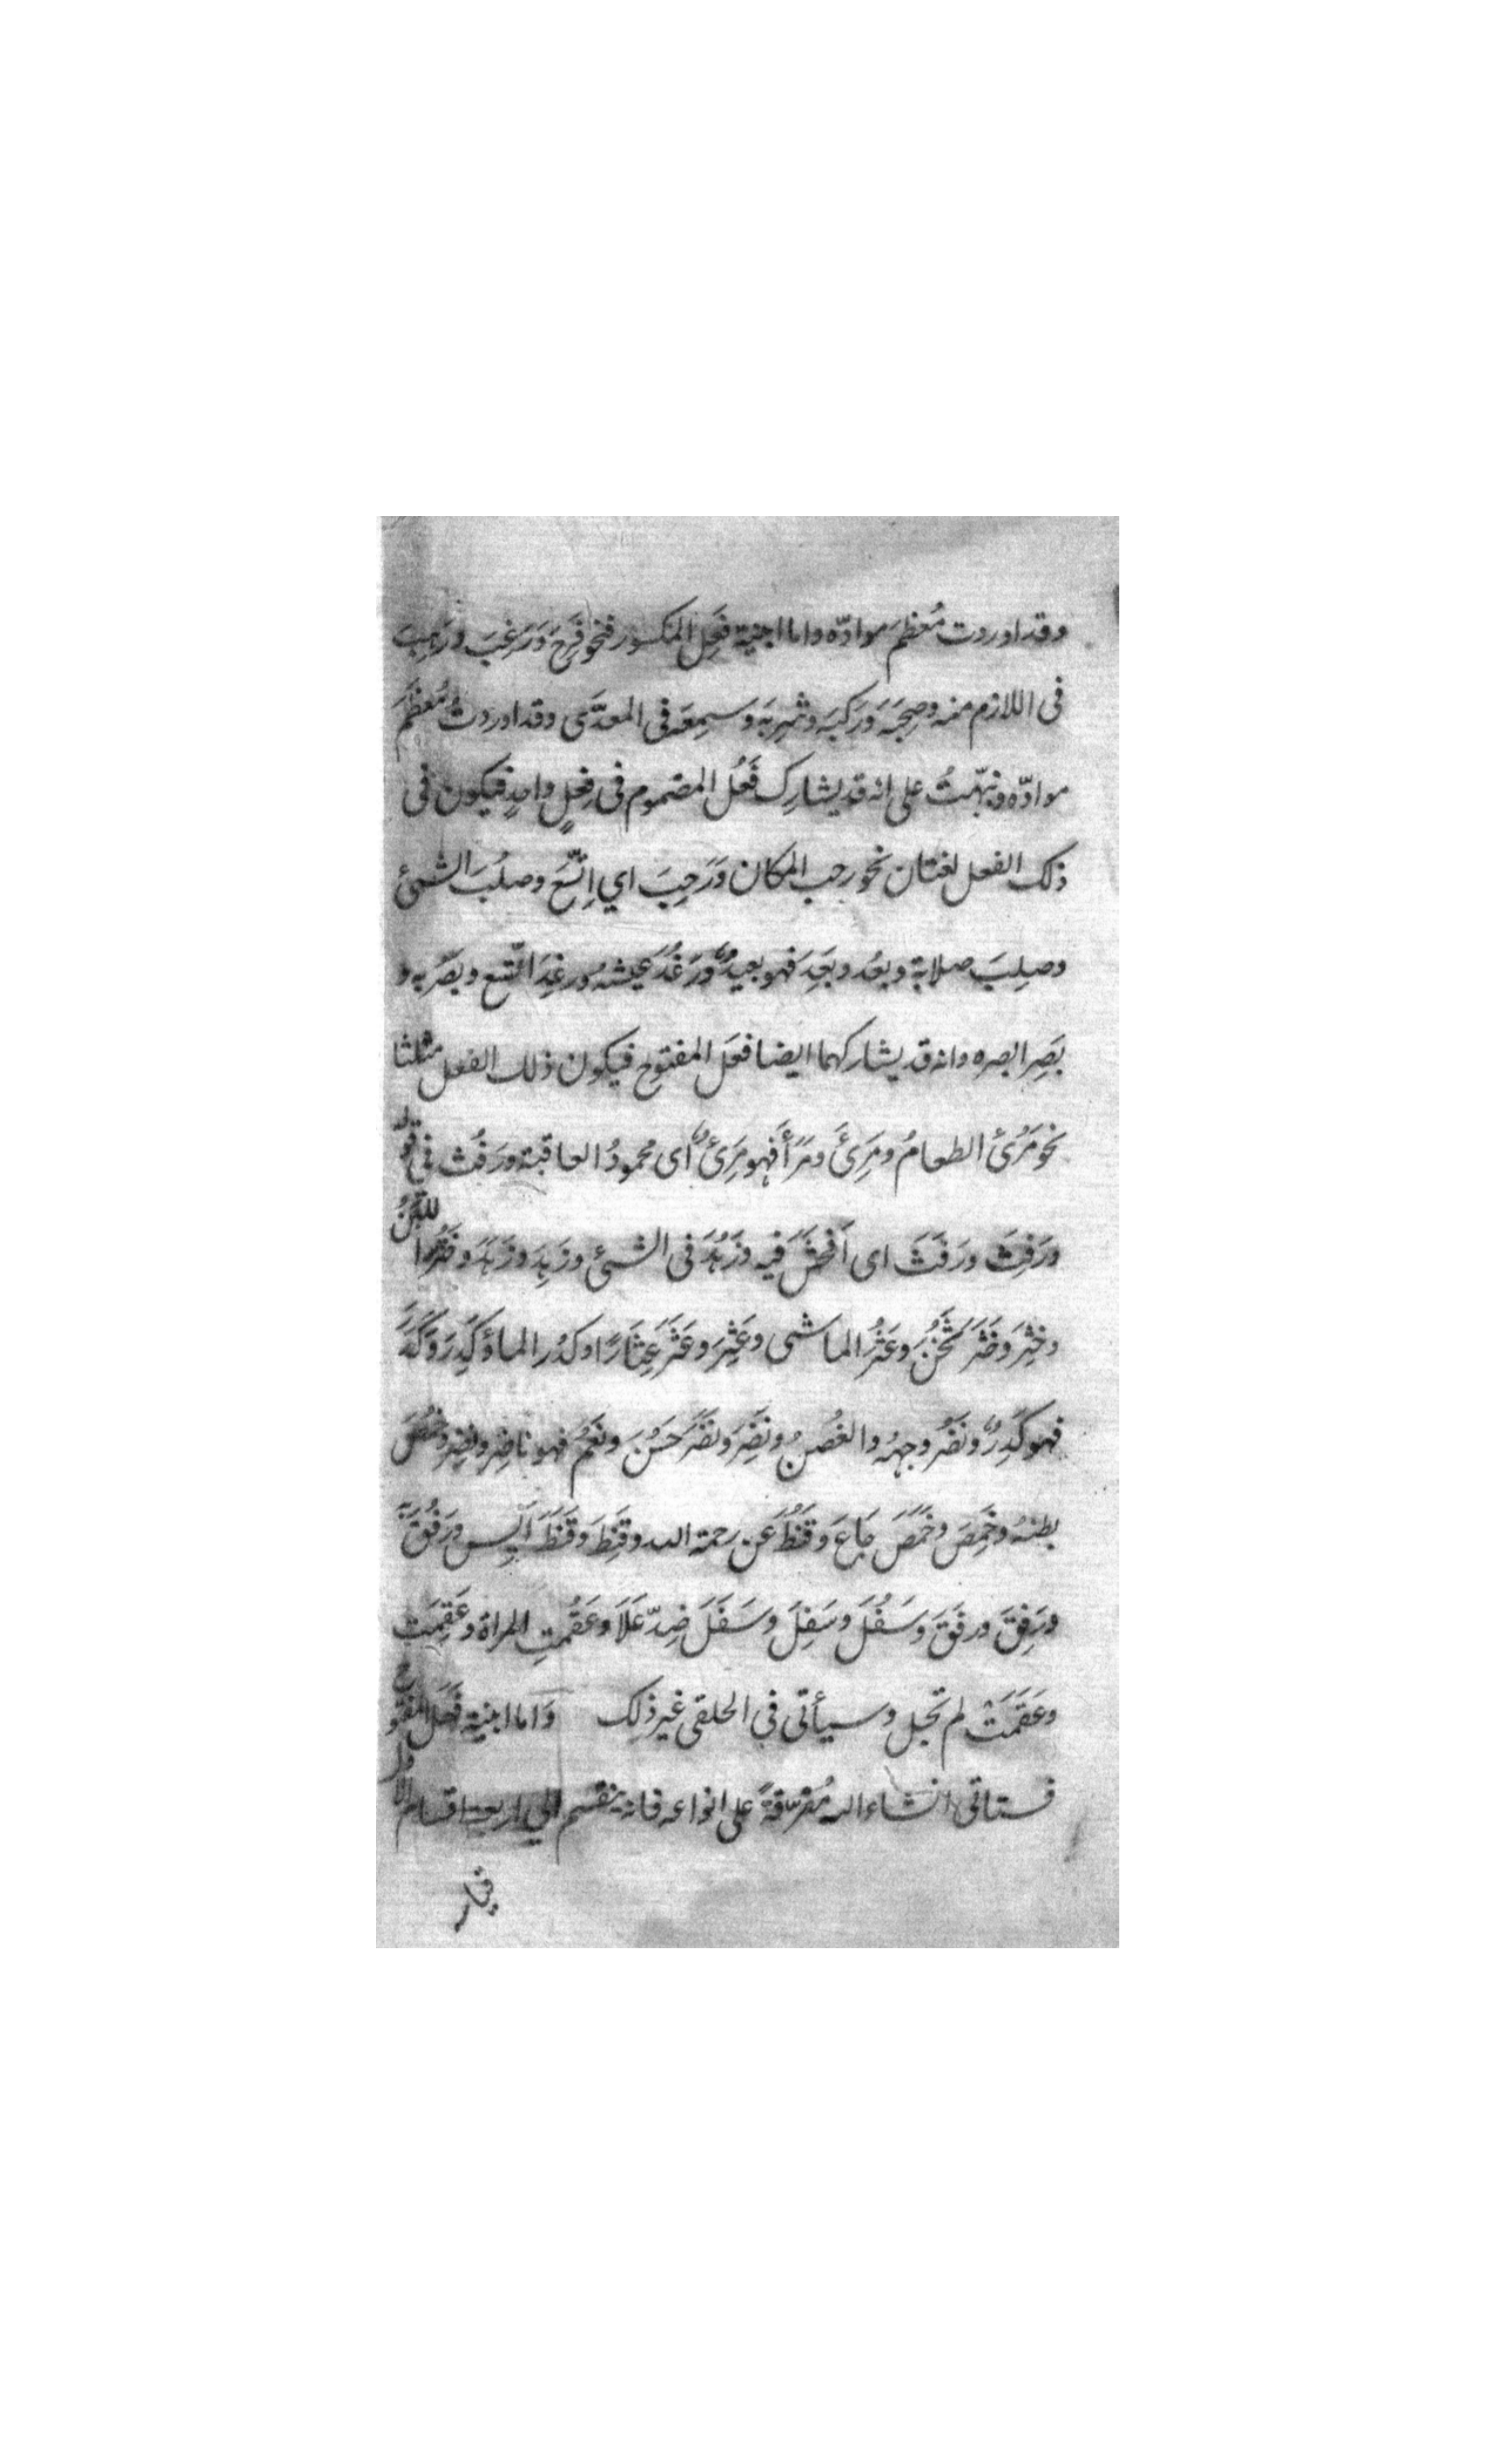 وقد اوردت مُعظمَ موادّه واما ابنية فَعِل المكسور فنحو فَرِحَ وَرَغِبَ ورَهِبَ
فى اللازم منه وصحِبَه وَرَكِبَه وشربَه وسمِعَه فى المعدَّى وقد اوردتُ مُعظمَ
موادّه ونبّهتُ على انه قد يشارِك فَعُل المضموم فى فِعلٍ واحدٍ فيكون فى
ذلك الفعل لغتان نحو رحب المكان وَرَحِبَ اي اِتَّسَعَ وصلُبَ الشئ
وصلِبَ صلابة وبعُد وبَعِدَ فهو بعيدٌ ورَغُدَ عيشهُ ورغِدَ اتّسع وبصُرَ به و
بَصِر ابصره وانه قد يشاركهما ايضا فعَل المفتوح فيكون ذلك الفعل مثلثا
نحو مَرُئَ الطعامُ ومَرِئَ ومَرَأَ فهو مَرِئٌ اى محمودُ العاقبة ورَفُث فى قوله
ورَفِثَ ورَفَثَ اى اَفحَشَ فيه وزَهُدَ فى الشئ وزَهِدَ وزَهَدَ وخَثُرَ اللبَنُ
وخَثِرَ وخَثَرَ ثَخُنَ وعَثُرَ الماشى وعَثِرَ وعَثَرَ عِثَارًا وكدُر الماؤ كَدِرَ وَكَدَرَ
فهو كَدِرٌ ونَضُر وجهُه والغُصنُ ونَضِرَ ونضَرَ حَسُنَ ونَعُمَ فهو ناضِر ونضِر وخمُصَ
بطنهُ وخَمِصَ وخَمَصَ جَاعَ وقَنُطَ عَن رحمة الله وقَنِطَ وقَنَطَ اَيِسَ ورَفُقَ به
ورَفِقَ ورفَقَ وسَفُلَ وسَفِلَ وسَفَلَ ضِدّ عَلَا وعَقُمتِ المراة وعَقِمَت
وعَقَمَتْ لم تحبل وسيأتى فى الحلقى غير ذلك وَاما ابنية فَعَل المفتوح
فستاتى انشاء الله مُفرّقةً على انواعه فانه ينقسم الى اربعة اقسام الاول